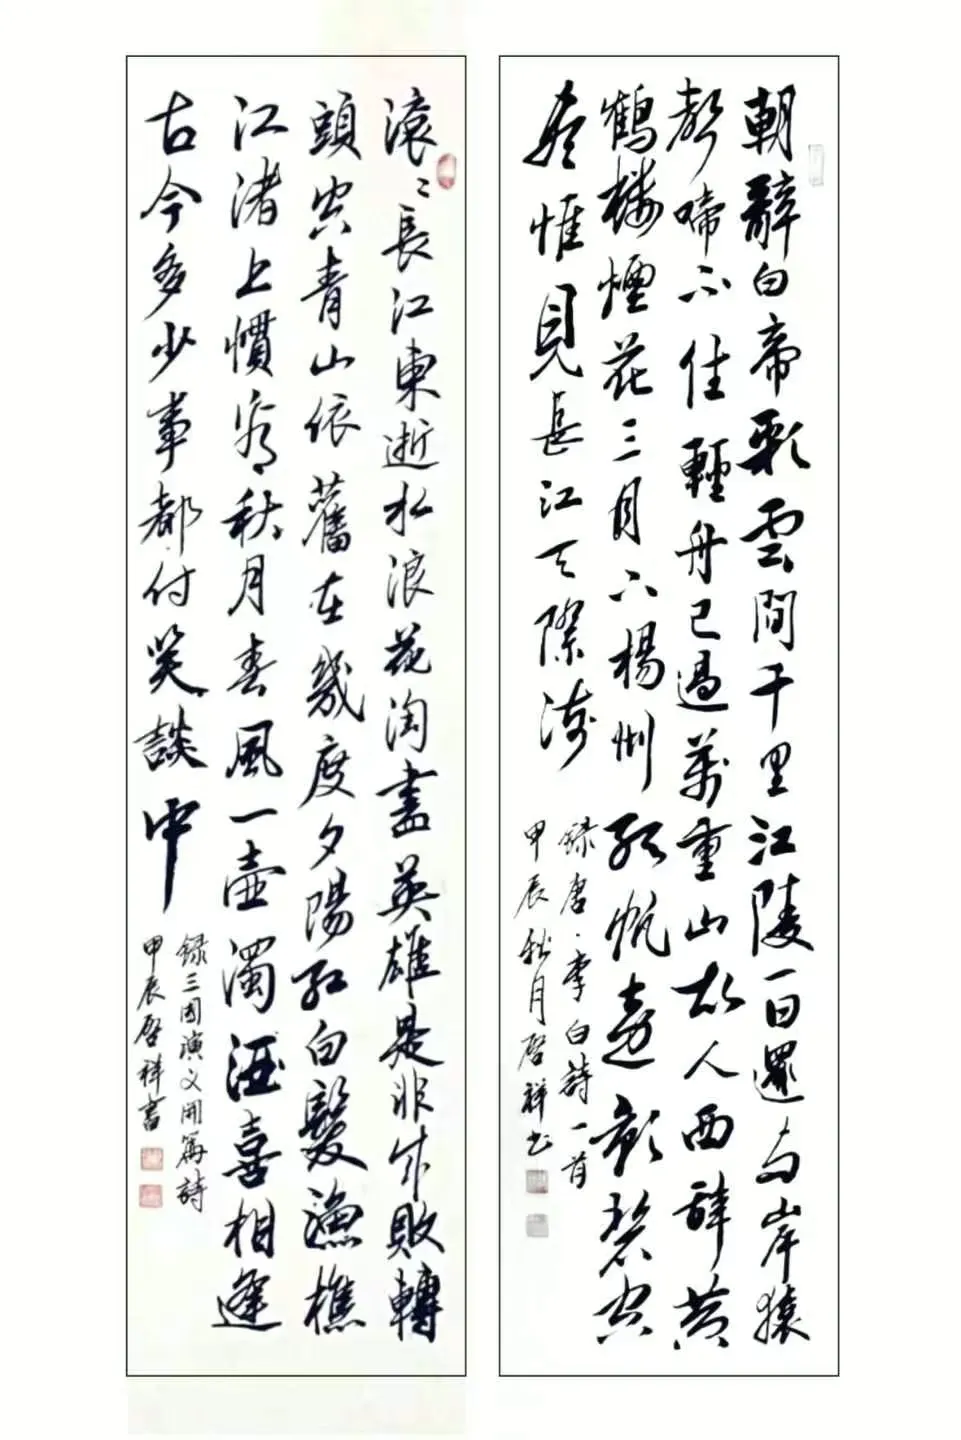 朝辭白帝彩雲間千里江陵一日還兩岸猿
聲啼不住輕舟已過萬重山故人西辭黃
鶴樓煙花三月下楊州孤帆遠影碧空
盡惟見長江天際流
録唐·李白詩一首
甲辰秋月啓祥书
滾〻長江東逝水浪花淘盡英雄是非成敗轉
頭空青山依舊在幾度夕陽紅白髮漁樵
江渚上慣看秋月春風一壺濁酒喜相逢
古今多少事都付笑談中
録三国演义開篇詩
甲辰啓祥書